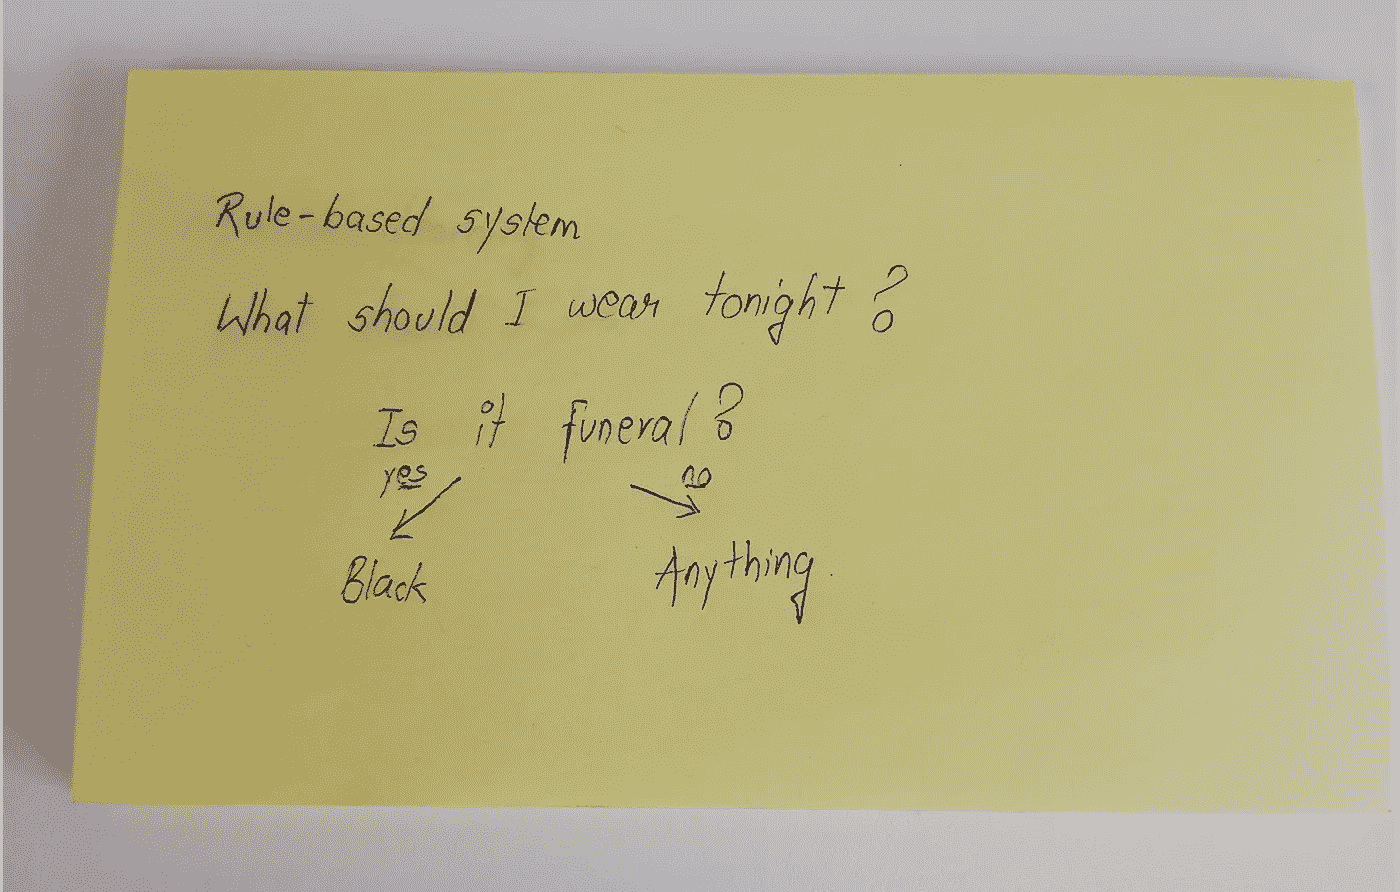 Rule-based system
What should I wear tonight?
Is it funeral?
yes no
Black Anything.